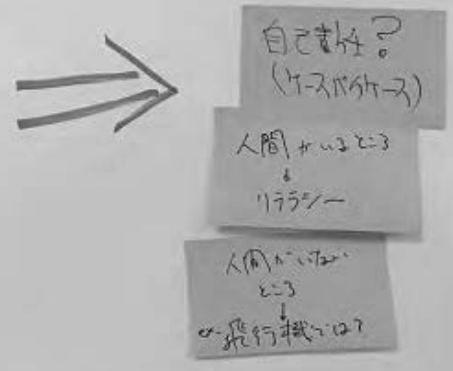 自己責任?
(ケースバイケース)
人間がいるところ
↓
リテラシー
人間がいない
ところ
↓
ex. 飛行機では?